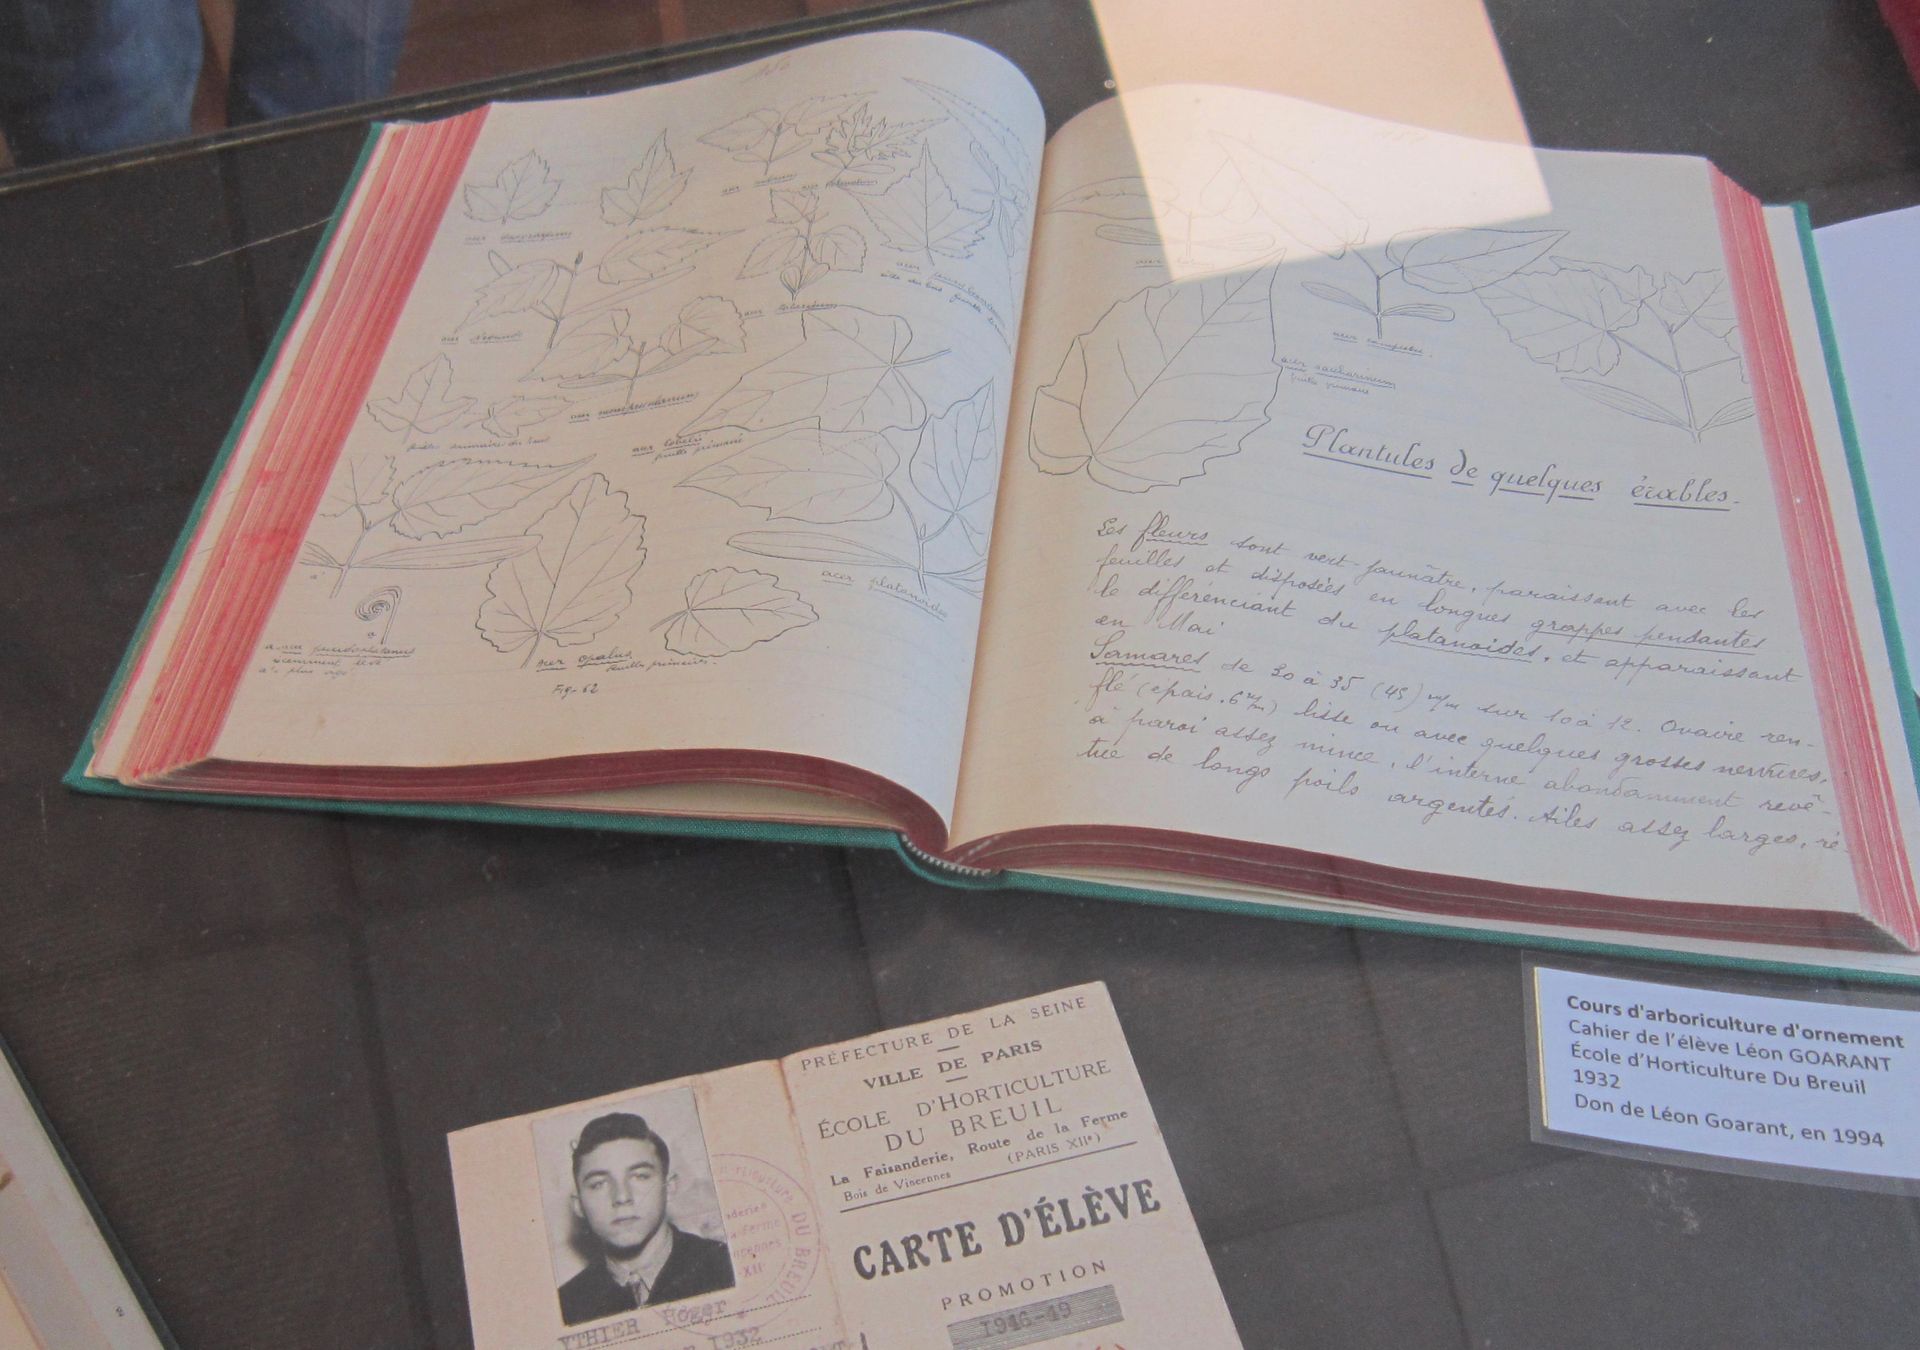 acer platanoides
acer opalus
feuille primaire.
acer pseudoplatanus
Fig-62
acer saccharinum
feuille primaire
Plantules de quelques érables.
Les fleurs sont vert-jaunâtre, paraissant avec les
feuilles et disposées en longues grappes pendantes
le différenciant du platanoides, et apparaissant
en Mai
Samares de 30 à 35 (45) m/m sur 10 à 12. Ovaire ren-
flé (épais. 6 m/m) lisse ou avec quelques grosses nervures,
à paroi assez mince, l'interne abondamment revê-
tue de longs poils argentés. Ailes assez larges, ré-
Cours d'arboriculture d'ornement
Cahier de l'élève Léon GOARANT
École d'Horticulture Du Breuil
1932
Don de Léon Goarant, en 1994
PRÉFECTURE DE LA SEINE
VILLE DE PARIS
ÉCOLE D'HORTICULTURE
DU BREUIL
La Faisanderie, Route de la Ferme
Bois de Vincennes (PARIS XIIe)
CARTE D'ÉLÈVE
PROMOTION
1946-49
DU BREUIL
YTHIER Roger
1932